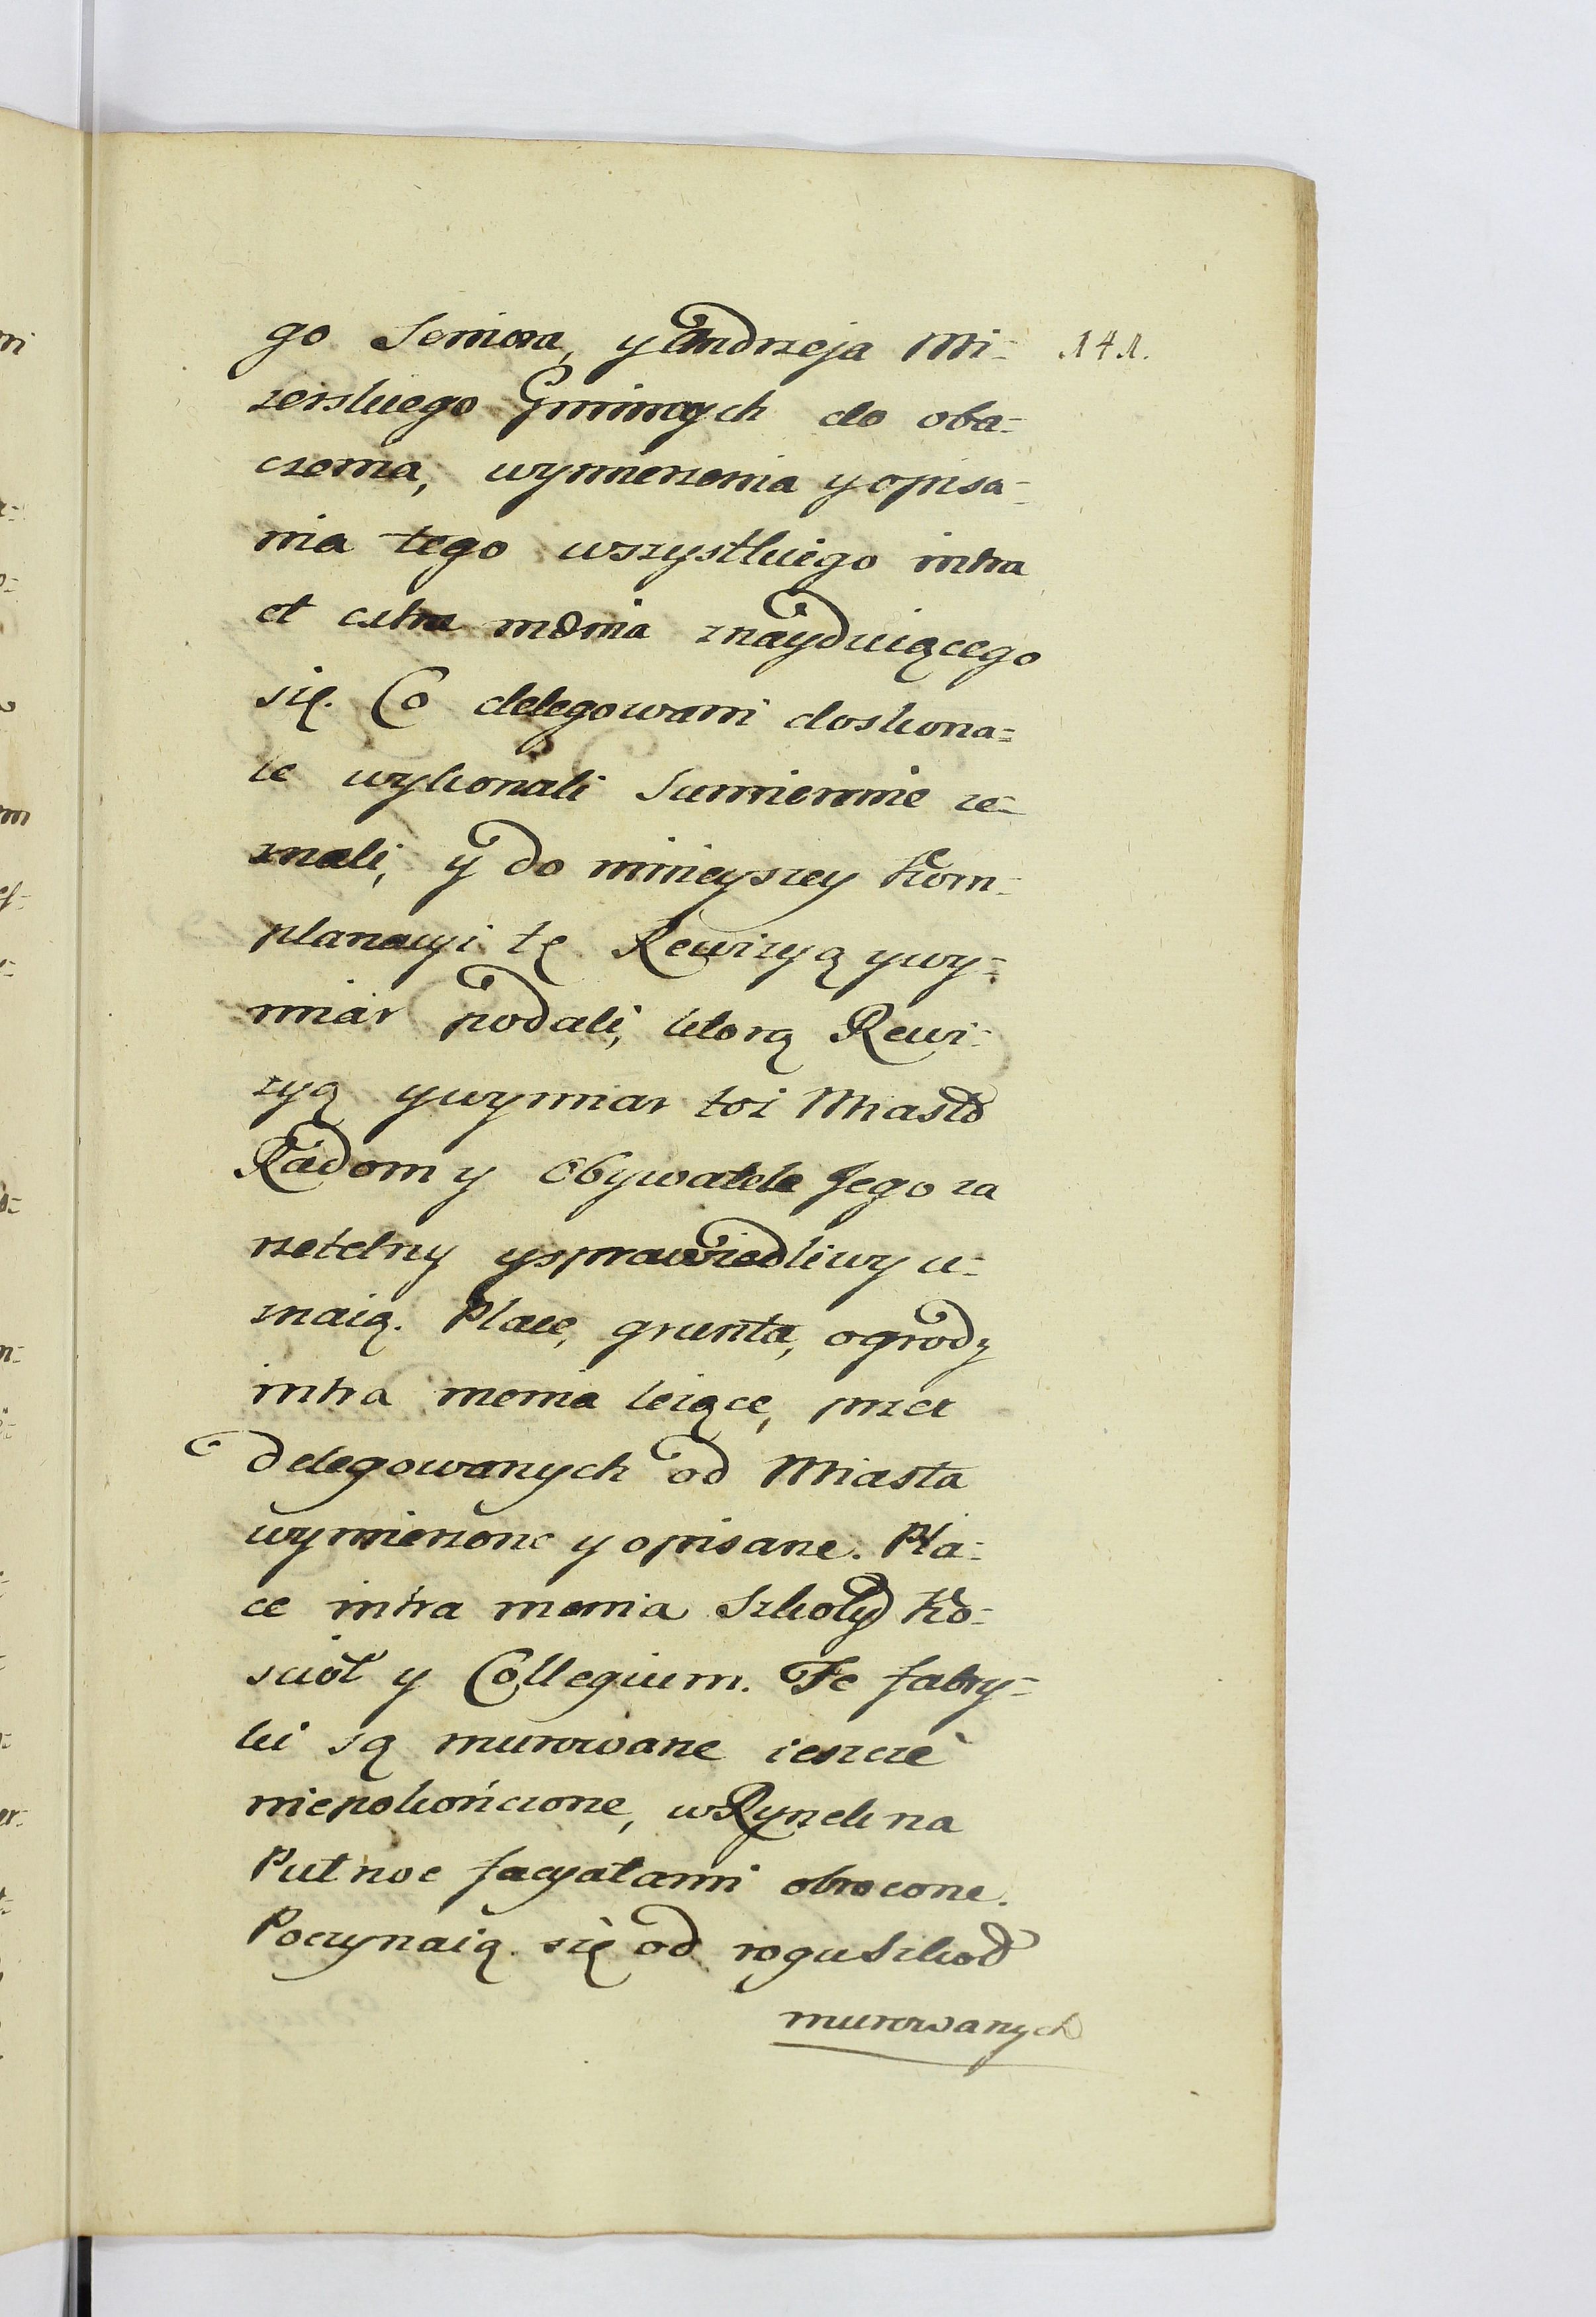 go Seniora, y Andrzeja Mi= 141.
zerskiego Gminnych do oba=
czenia, wymierzenia y opisa=
nia tego wszystkiego intra
et extra mænia znayduiącego
się. Co delegowani doskona=
le wykonali Sumiennie ze=
znali, y do ninieyszey Kom=
planacyi tę Rewizyą y wy=
miar podali, ktorą Rewi=
zyą y wymiar toż Miasto
Radom y Obywatele Jego za
rzetelny y sprawiedliwy u=
znaią. Place, grunta, ogrody
intra menia leżące, przez
delegowanych od Miasta
wymierzone y opisane. Pla=
ce intra menia Szkoły Ko=
sciół y Collegium. Te fabry=
ki są murowane ieszcze
niepokończone, w Rynek na
Pułnoc facyatami obrocone.
Poczynaią się od rogu Szkoł
murowanych